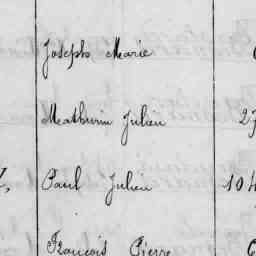 Joseph Marie
Mathurin Julien 27
Paul Julien 104
François Pierre